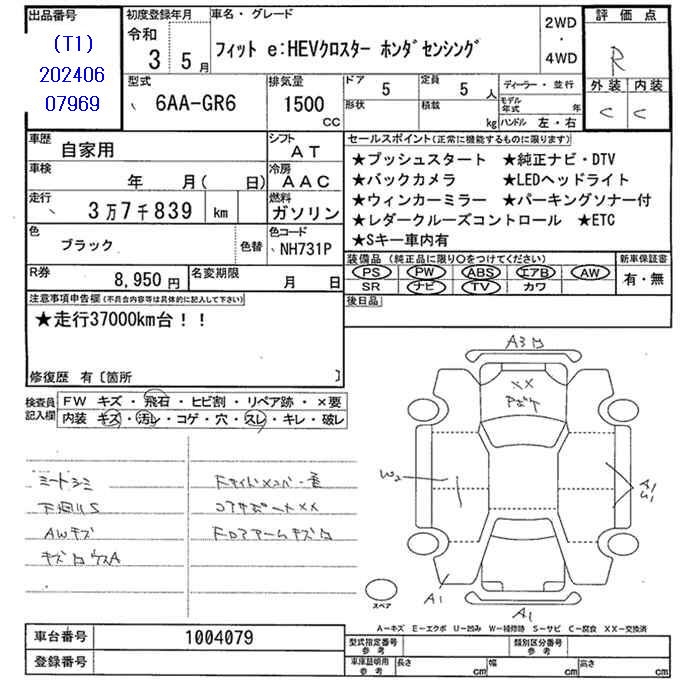 出品番号
(T1)
202406
07969
初度登録年月
令和
3 5月
車名・グレード
フィット e:HEVクロスター ホンダセンシング
2WD
・
4WD
評価点
R
外装 内装
C C
型式
6AA-GR6
排気量
1500
CC
ドア 5
形状
定員 5 人
積載 kg
ディーラー・並行
モデル年式 年
ハンドル 左・右
車歴
自家用
シフト
AT
車検
年 月( 日)
冷房
AAC
走行
3万7千839 km
燃料
ガソリン
色
ブラック
色替
色コード
NH731P
R券
8,950円
名変期限
月 日
セールスポイント(正常に機能するものに限ります)
★プッシュスタート ★純正ナビ・DTV
★バックカメラ ★LEDヘッドライト
★ウィンカーミラー ★パーキングソナー付
★レダークルーズコントロール ★ETC
★Sキー車内有
装備品 (純正品に限り○をつけてください)
PS PW ABS エアB AW
SR ナビ TV カワ
新車保証書
有・無
後日品
注意事項申告欄(不具合内容等は具体的に記入して下さい)
★走行37000km台!!
修復歴 有〔箇所 〕
検査員記入欄
FW キズ・飛石・ヒビ割・リペア跡・×要
内装 キズ・汚レ・コゲ・穴・スレ・キレ・破レ
シートシミ
AWキズ
A3
XX
W2
A1
U1
A1
A1
スペア
A-キズ E-エクボ U-凹み W-補修跡 S-サビ C-腐食 XX-交換済
車台番号
1004079
登録番号
型式指定番号
参考
類別区分番号
参考
車庫証明用
参考
長さ cm 幅 cm 高さ cm